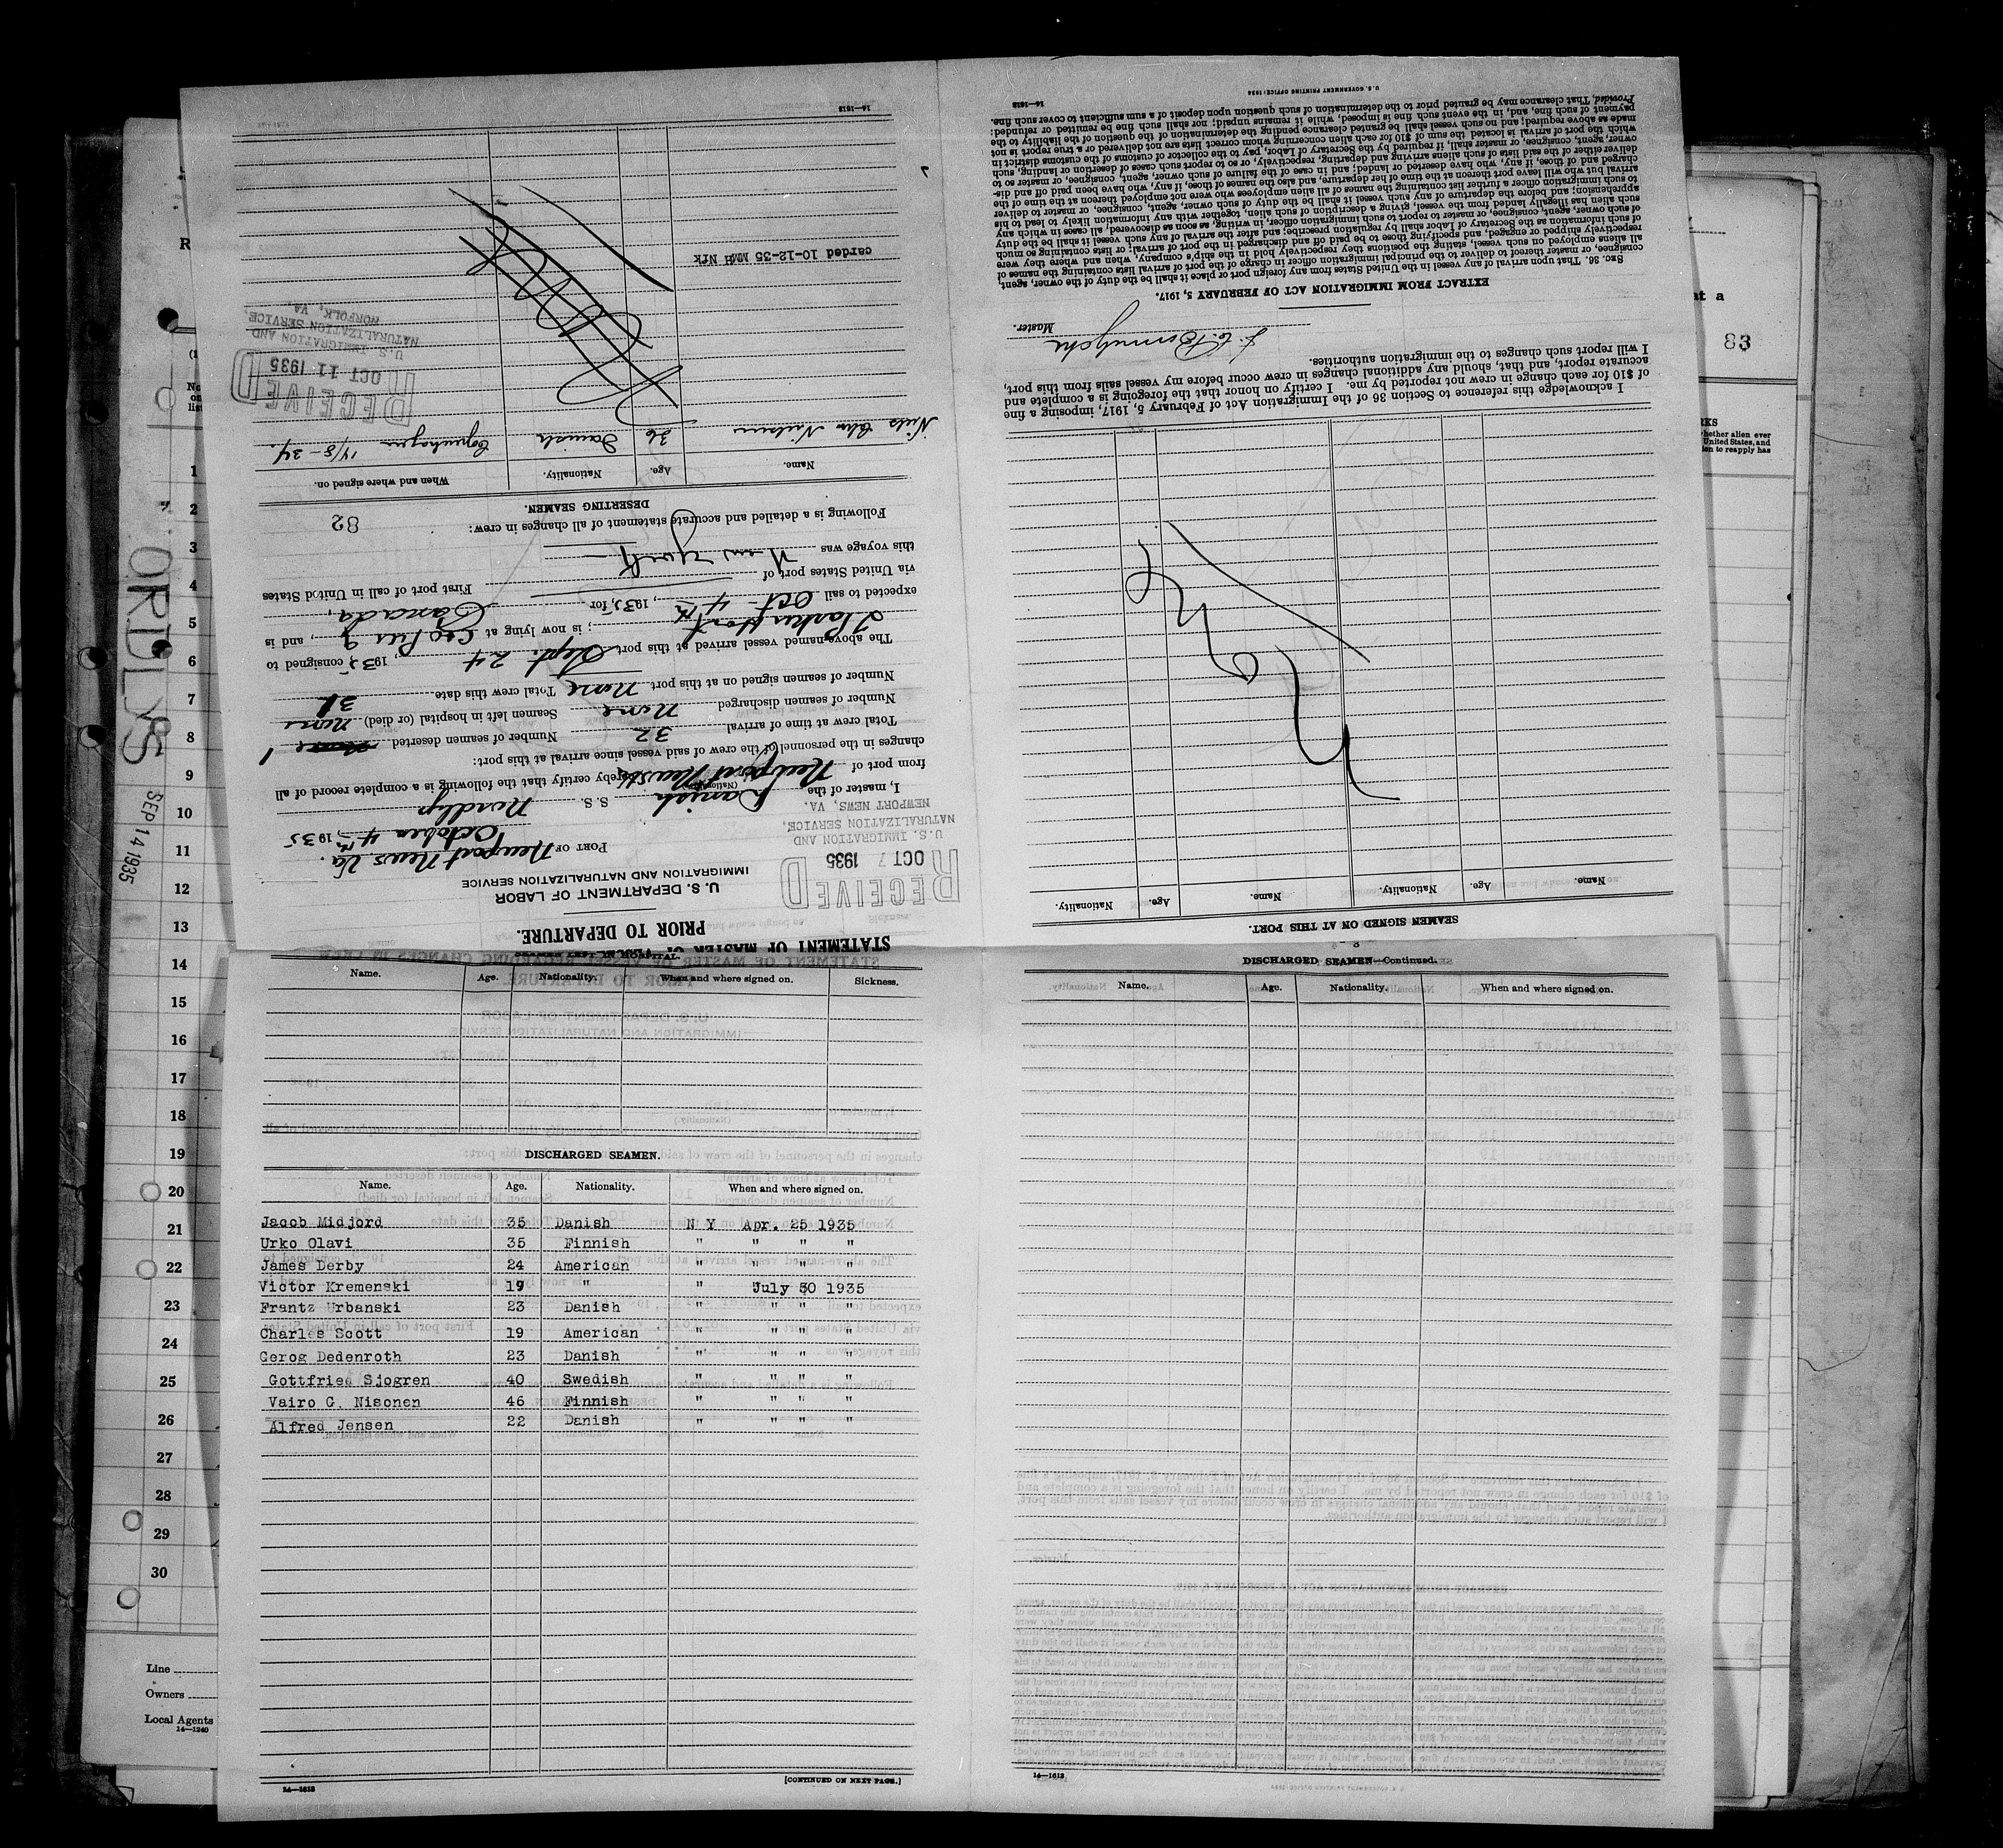 STATEMENT OF MASTER OF VESSEL
PRIOR TO DEPARTURE.
U. S. DEPARTMENT OF LABOR
IMMIGRATION AND NATURALIZATION SERVICE
RECEIVED
OCT 7 1935
U. S. IMMIGRATION AND
NATURALIZATION SERVICE,
NEWPORT NEWS, VA.
PORT OF Newport News Va.
October 4th, 1935
I, master of the Danish S. S. Nordlys
(Nationality)
from port of Newport News hereby certify that the following is a complete record of all
changes in the personnel of the crew of said vessel since arrival at this port:
Total crew at time of arrival 32 Number of seamen deserted 1
Number of seamen discharged None Seamen left in hospital (or died) None
Number of seamen signed on at this port None Total crew this date 31
The above-named vessel arrived at this port Sept. 24, 1935, consigned to
; is now lying at C&O Pier 9, and is
expected to sail Oct 4th, 1935, for Canada,
via United States port of First port of call in United States
this voyage was New York
Following is a detailed and accurate statement of all changes in crew:
82
DESERTING SEAMEN.
Name. Age. Nationality. When and where signed on.
Niels Chr Nielsen 36 Danish Copenhagen 14/8-34.
RECEIVED
OCT 11 1935
U. S. IMMIGRATION AND
NATURALIZATION SERVICE,
NORFOLK, VA.
carded 10-12-35 MMH Nfk
14—1613
SEAMEN SIGNED ON AT THIS PORT.
Name. Age. Nationality. Name. Age. Nationality.
I acknowledge this reference to Section 36 of the Immigration Act of February 5, 1917, imposing a fine
of $10 for each change in crew not reported by me. I certify on honor that the foregoing is a complete and
accurate report, and that, should any additional changes in crew occur before my vessel sails from this port,
I will report such changes to the immigration authorities.
Master.
EXTRACT FROM IMMIGRATION ACT OF FEBRUARY 5, 1917.
SEC. 36. That upon arrival of any vessel in the United States from any foreign port or place it shall be the duty of the owner, agent,
consignee, or master thereof to deliver to the principal immigration officer in charge of the port of arrival lists containing the names of
all aliens employed on such vessel, stating the positions they respectively hold in the ship's company, when and where they were
respectively shipped or engaged, and specifying those to be paid off and discharged in the port of arrival; or lists containing so much
of such information as the Secretary of Labor shall by regulation prescribe; and after the arrival of any such vessel it shall be the duty
of such owner, agent, consignee, or master to report to such immigration officer, in writing, as soon as discovered, all cases in which any
such alien has illegally landed from the vessel, giving a description of such alien, together with any information likely to lead to his
apprehension; and before the departure of any such vessel it shall be the duty of such owner, agent, consignee, or master to deliver
to such immigration officer a further list containing the names of all alien employees who were not employed thereon at the time of the
arrival but who will leave port thereon at the time of her departure, and also the names of those, if any, who have been paid off and dis-
charged and of those, if any, who have deserted or landed; and in case of the failure of such owner, agent, consignee, or master so to
deliver either of the said lists of such aliens arriving and departing, respectively, or so to report such cases of desertion or landing, such
owner, agent, consignee, or master shall, if required by the Secretary of Labor, pay to the collector of customs of the customs district in
which the port of arrival is located the sum of $10 for each alien concerning whom correct lists are not delivered or a true report is not
made as above required; and no such vessel shall be granted clearance pending the determination of the question of the liability to the
payment of such fine, and, in the event such fine is imposed, while it remains unpaid; nor shall such fine be remitted or refunded:
Provided, That clearance may be granted prior to the determination of such question upon deposit of a sum sufficient to cover such fine.
14—1613
U. S. GOVERNMENT PRINTING OFFICE: 1934
Name. Age. Nationality. When and where signed on. Sickness.
DISCHARGED SEAMEN.
Name. Age. Nationality. When and where signed on.
Jacob Midjord 35 Danish N Y Apr. 25 1935
Urko Olavi 35 Finnish " " " "
James Derby 24 American " " " "
Victor Kremenski 19 " " July 30 1935
Frantz Urbanski 23 Danish " " " "
Charles Scott 19 American " " " "
Gerog Dedenroth 23 Danish " " " "
Gottfried Sjogren 40 Swedish " " " "
Vairo G. Nisonen 46 Finnish " " " "
Alfred Jensen 22 Danish " " " "
14—1613
[CONTINUED ON NEXT PAGE.]
DISCHARGED SEAMEN—Continued.
Name. Age. Nationality. When and where signed on.
14—1613
ORDLYS
SEP 14 1935
1
2
3
4
5
6
7
8
9
10
11
12
13
14
15
16
17
18
19
20
21
22
23
24
25
26
27
28
29
30
Line
Owners
Local Agents
14—1240
at a
83